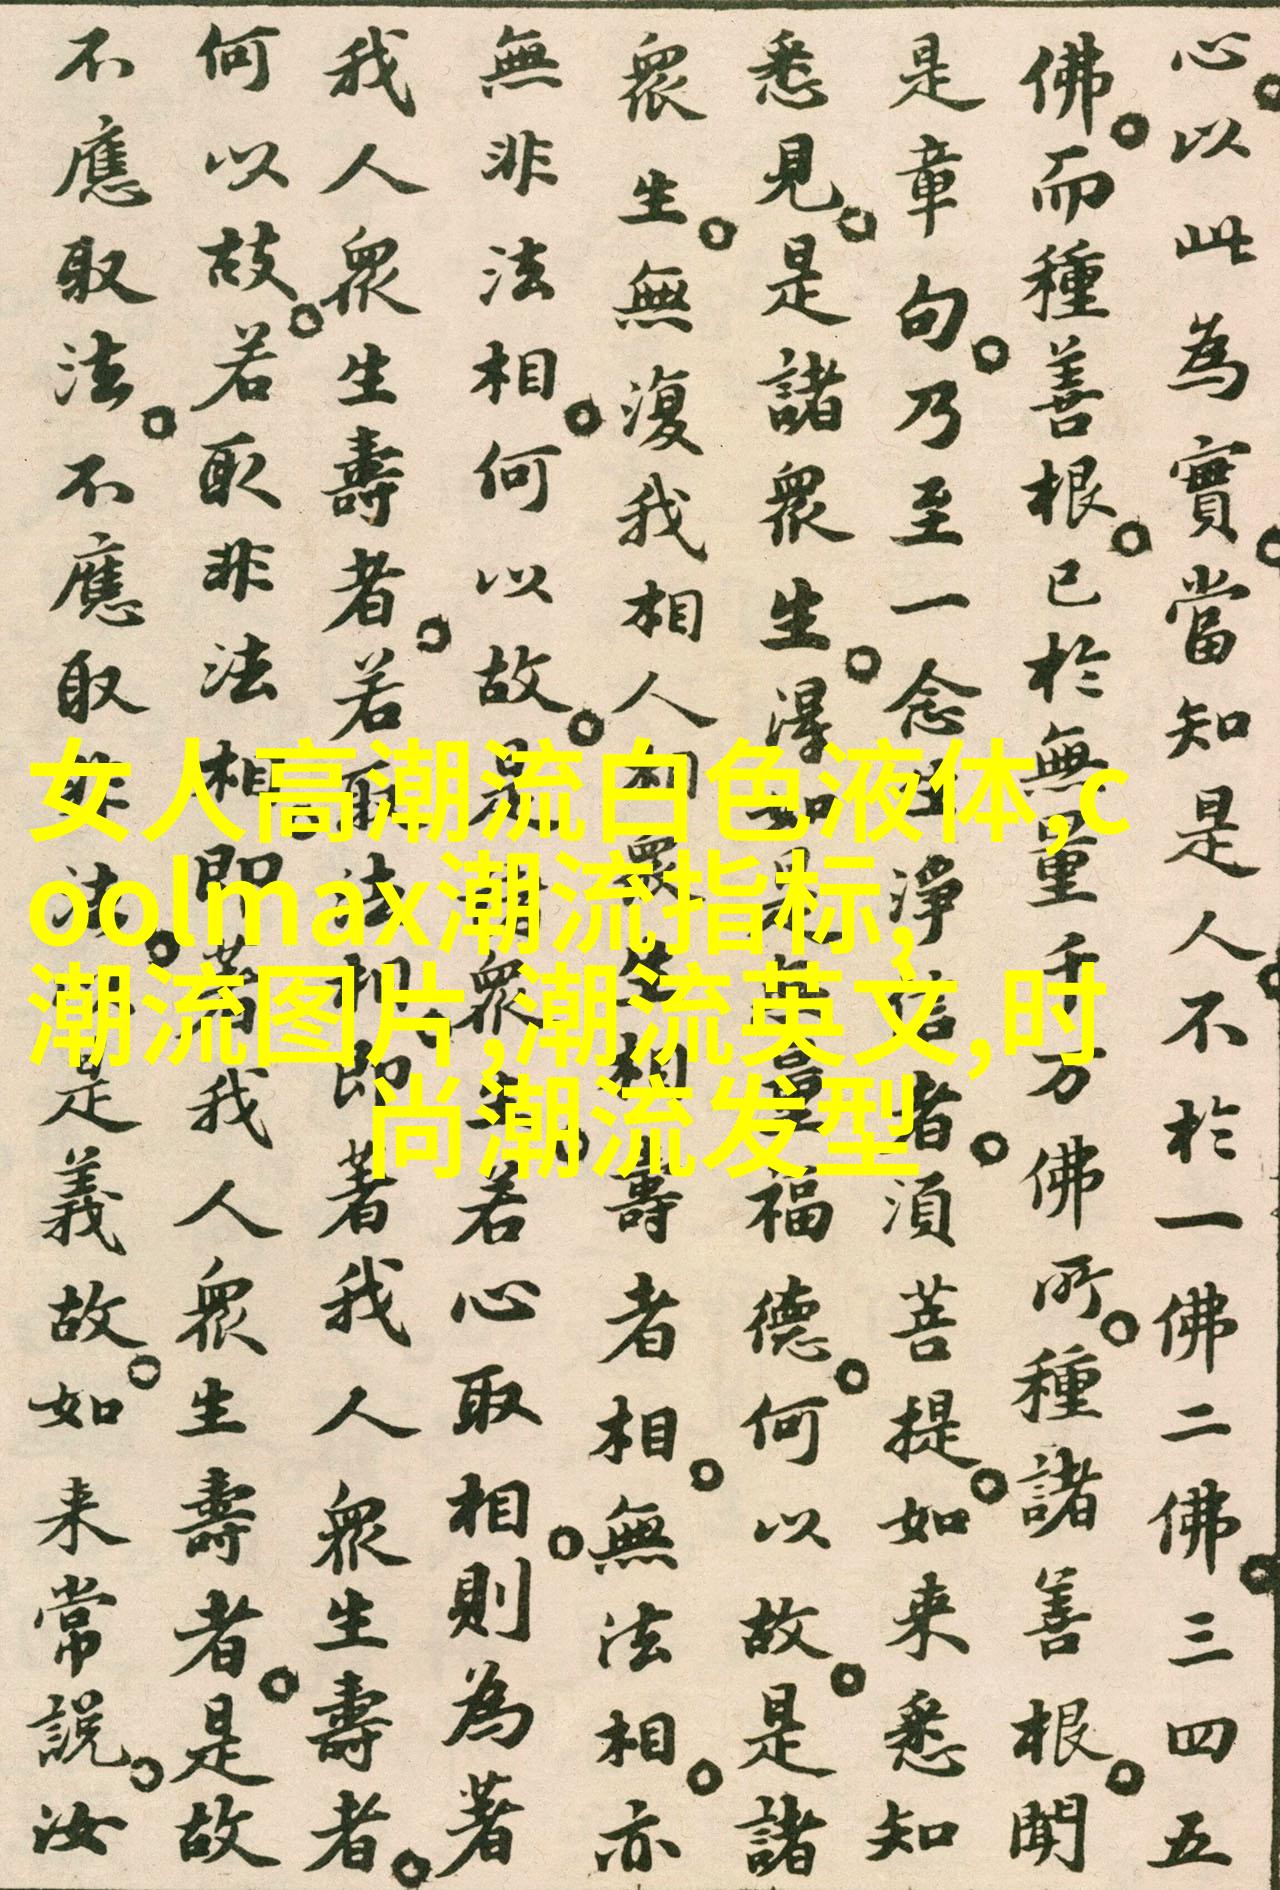 心。以此為實。當知是人。不於一佛二佛。三四五
佛。而種善根。已於無量千万佛所。種諸善根。聞
是章句。乃至一念生淨信者。須菩提。如来悉知
悉見。是諸衆生。得如是無量福德。何以故。是諸
衆生。無復我相人相衆生相壽者相。無法相。亦
無非法相。何以故。是諸衆生。若心取相。則為著
我人衆生壽者。若法相。即著我人衆生壽者。
何以故。若取非法相。即著我人衆生壽者。是故
不應取法。不應取非法。是義故。如来常說。汝
女人高潮流白色液体,c
oolmax潮流指标,
潮流图片,潮流英文,时
尚潮流发型